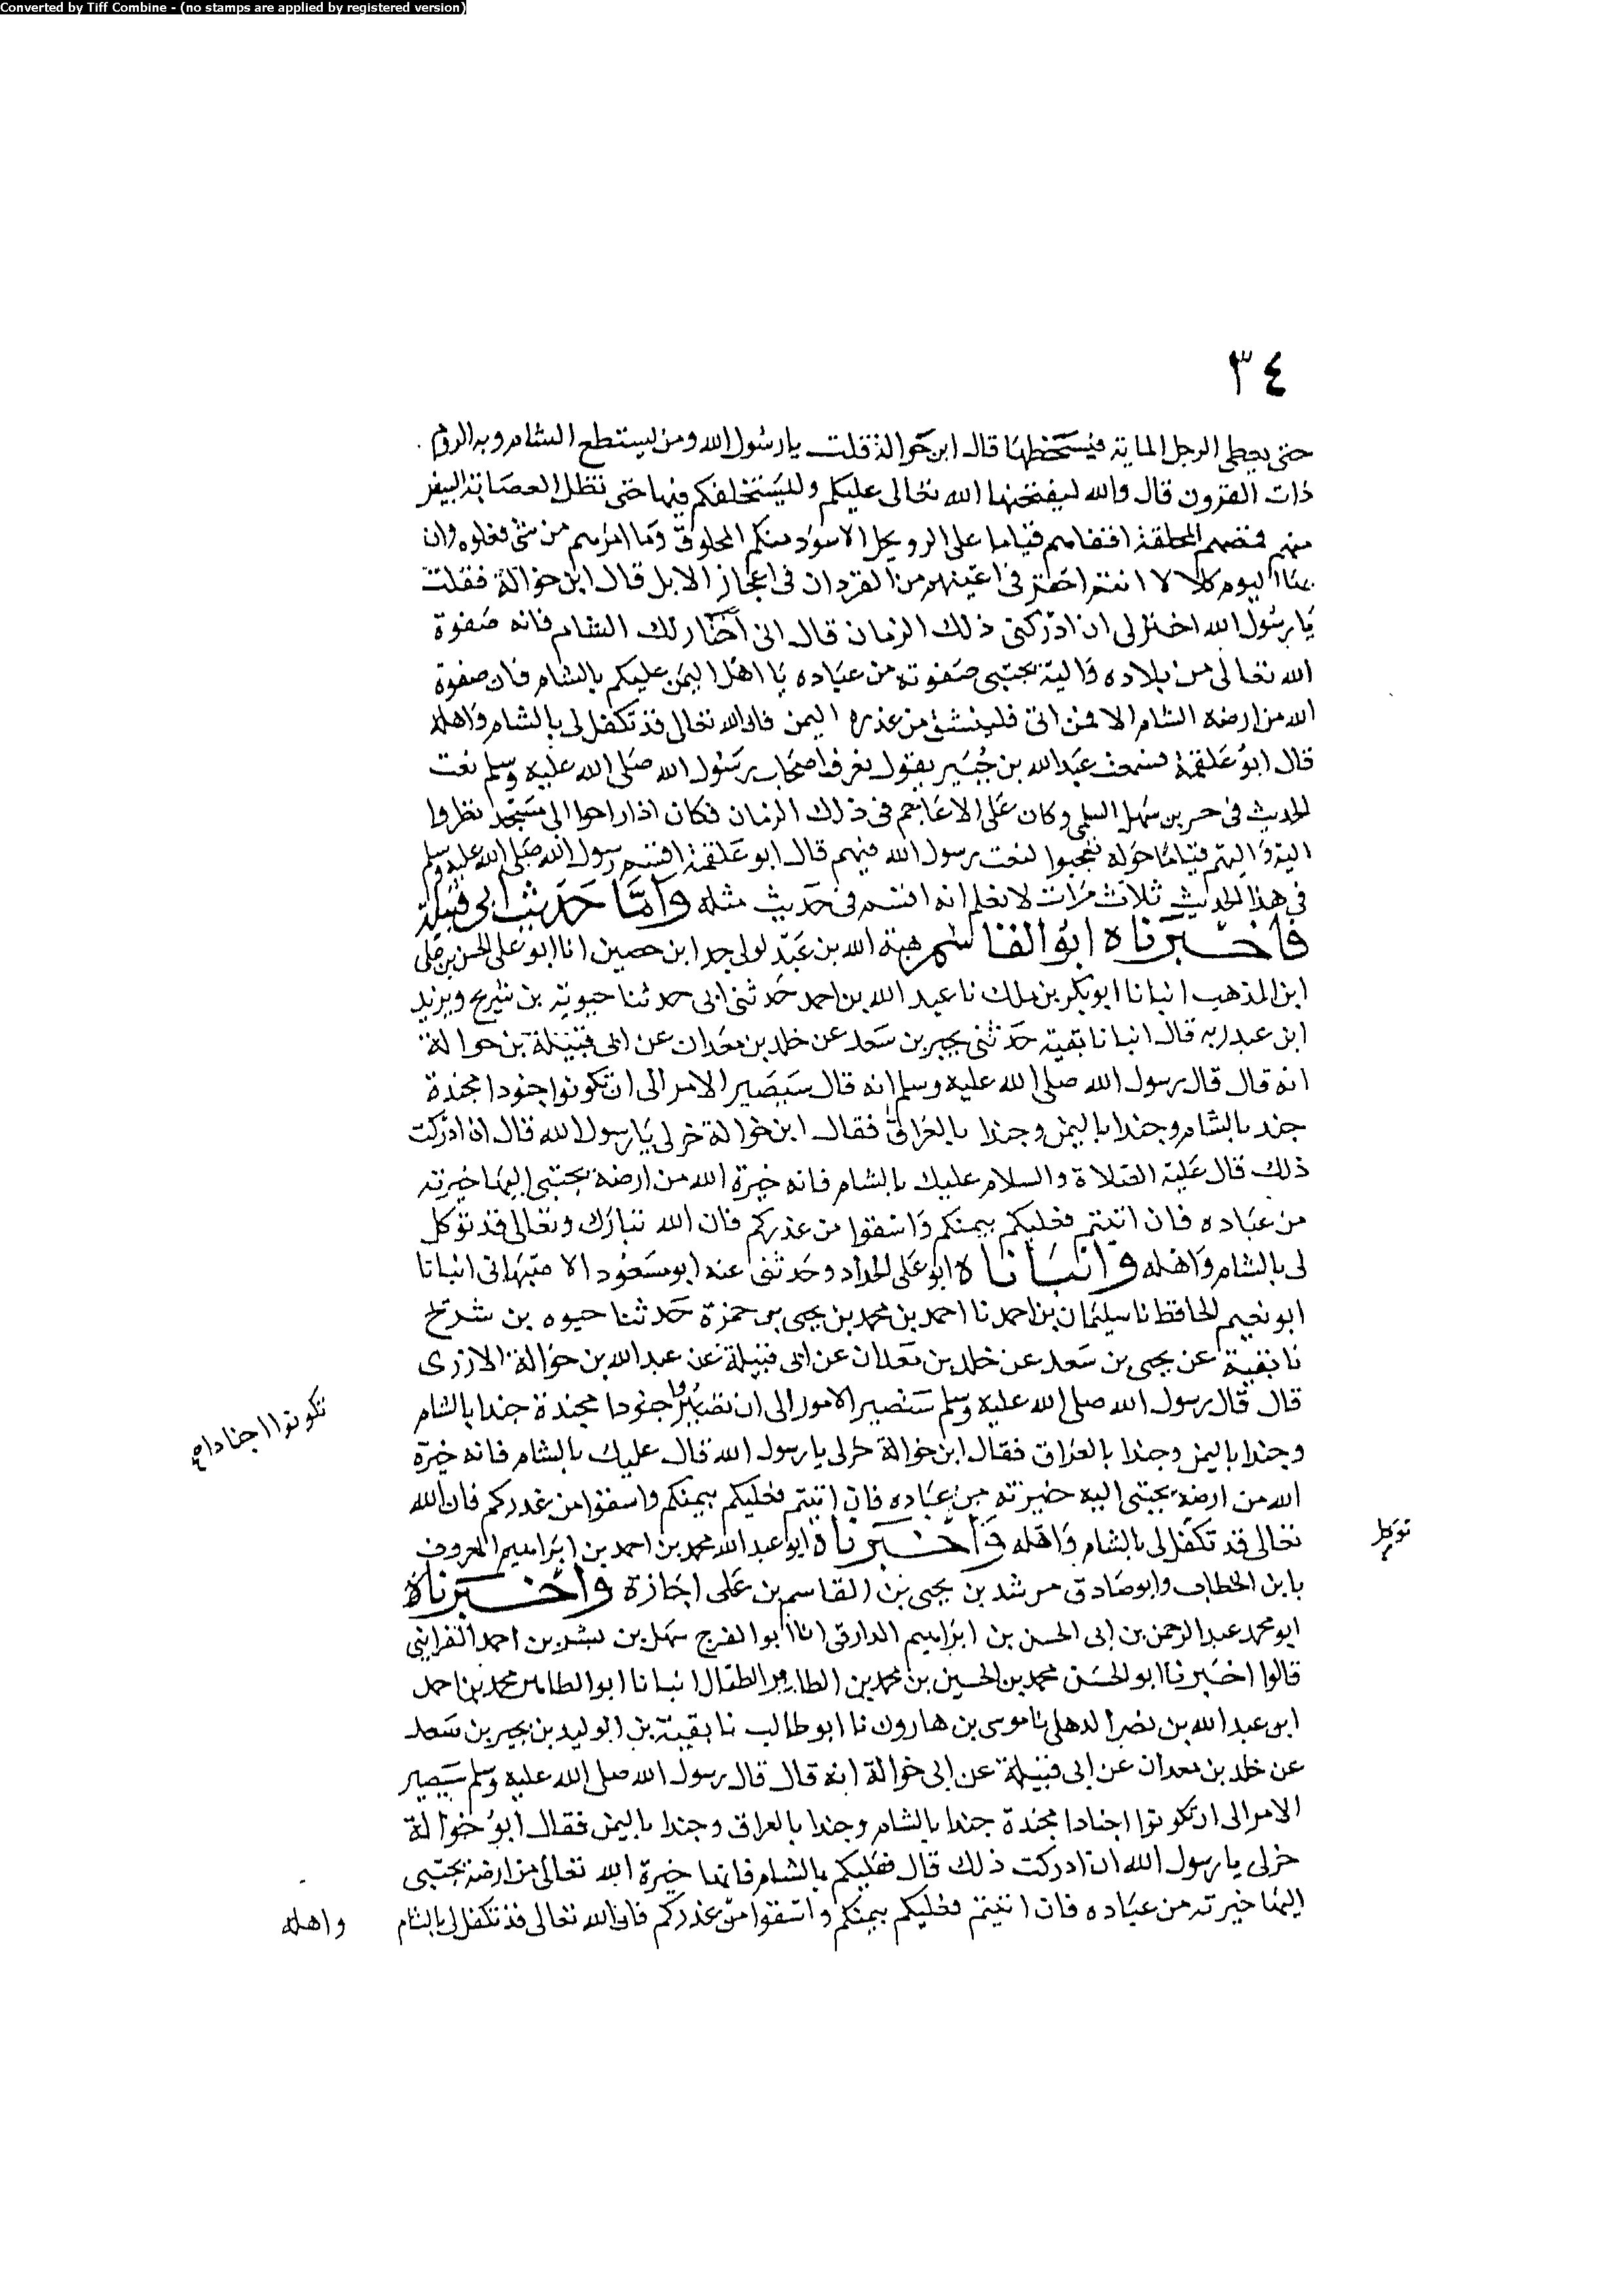 Converted by Tiff Combine - (no stamps are applied by registered version)
٣٤
حتى يعطى الرجل الماية فيستحظها قال ابن حوالة قلت يارسول الله ومن يستطع الشام وبه الروم
ذات القرون قال والله ليفتحنها الله تعالى عليكم وليستخلفكم فيها حتى تظل العصابة البيض
منهم قمصهم المحلقة اقفاهم قياما على الرويجل الاسود منكم المحلوق وما امرهم من شئ فعلوه وان
بها اليوم رجالا لانتم احقر فى اعينهم من القردان فى اعجاز الابل قال ابن حوالة فقلت
يا رسول الله اختر لى ان ادركنى ذلك الزمان قال انى اختار لك الشام فانه صفوة
الله تعالى من بلاده واليه يجتبى صفوته من عباده يا اهل اليمن عليكم بالشام فان صفوة
الله من ارضه الشام الا فمن ابى فليستق من غدره اليمن فان الله تعالى قد تكفل لى بالشام واهله
قال ابو علقمة فسمعت عبد الله بن جبير يقول يعرف اصحاب رسول الله صلى الله عليه وسلم نعت
الحديث فى جبر بن سهل السلمى وكان على الاعاجم فى ذلك الزمان فكان اذا راحوا الى مسجد نظروا
اليه واليهم قياما حوله فعجبوا لنعت رسول الله فيهم قال ابو علقمة اقسم رسول الله صلى الله عليه وسلم
فى هذا الحديث ثلاث مرات لا نعلم انه اقسم فى حديث مثله واما حديث ابى قتيلة
فاخبرناه ابو القاسم هبة الله بن عبد لولى جد ابن حصين انا ابو على الحسن بن على
ابن المذهب انبانا ابو بكر بن ملك نا عبد الله بن احمد حدثنى ابى حدثنا حيوية بن شريح ويزيد
ابن عبد ربه قال انبانا بقية حدثنى بحير بن سعد عن خلد بن معدان عن ابى قتيلة بن حوالة
انه قال قال رسول الله صلى الله عليه وسلم انه قال سيصير الامر الى ان تكونوا جنودا مجندة
جند بالشام وجندا باليمن وجندا بالعراق فقال ابن حوالة خر لى يا رسول الله قال ان ادركت
ذلك قال عليه الصلاة والسلام عليك بالشام فانه خيرة الله من ارضه يجتبى اليها خيرته
من عباده فان ابيتم فعليكم بيمنكم واسقوا من غدركم فان الله تبارك وتعالى قد توكل
لى بالشام واهله وانباناه ابو على الحداد وحدثنى عنه ابو مسعود الاصبهانى انبانا
ابو نعيم الحافظ نا سليمان بن احمد نا احمد بن محمد بن يحيى بن حمزة حدثنا حيوه بن شريح
نا بقية عن يحيى بن سعد عن خلد بن معدان عن ابى قتيلة عن عبد الله بن حوالة الازدى
قال قال رسول الله صلى الله عليه وسلم ستصير الامور الى ان تصيروا جنودا مجندة جندا بالشام
تكونوا اجنادا
وجندا باليمن وجندا بالعراق فقال ابن حوالة خر لى يا رسول الله قال عليك بالشام فانه خيرة
الله من ارضه يجتبى اليه خيرته من عباده فان ابيتم فعليكم بيمنكم واسقوا من غدركم فان الله
توكل
تعالى قد تكفل لى بالشام واهله واخبرناه ابو عبد الله محمد بن احمد بن ابراهيم المعروف
بابن الحطاب وابو صادق مرشد بن يحيى بن القاسم بن على اجازة واخبرناه
ابو محمد عبد الرحمن بن ابى الحسن بن ابراهيم الدارنى انا ابو الفرج سهل بن بشر بن احمد
قالوا اخبرنا ابو الحسن محمد بن الحسين بن محمد بن الطاهر الطفال انبانا ابو الطاهر محمد بن احمد
ابن عبد الله بن نصر الذهلى نا موسى بن هارون نا ابو طالب نا بقية بن الوليد بن بحير بن سعد
عن خلد بن معدان عن ابى قتيلة عن ابى حوالة انه قال قال رسول الله صلى الله عليه وسلم سيصير
الامر الى ان تكونوا اجنادا مجندة جندا بالشام وجندا بالعراق وجندا باليمن فقال ابو حوالة
خر لى يا رسول الله ان ادركت ذلك قال فعليكم بالشام فانها خيرة الله تعالى من ارضه يجتبى
اليها خيرته من عباده فان ابيتم فعليكم بيمنكم واسقوا من غدركم فان الله تعالى قد تكفل لى بالشام
واهله